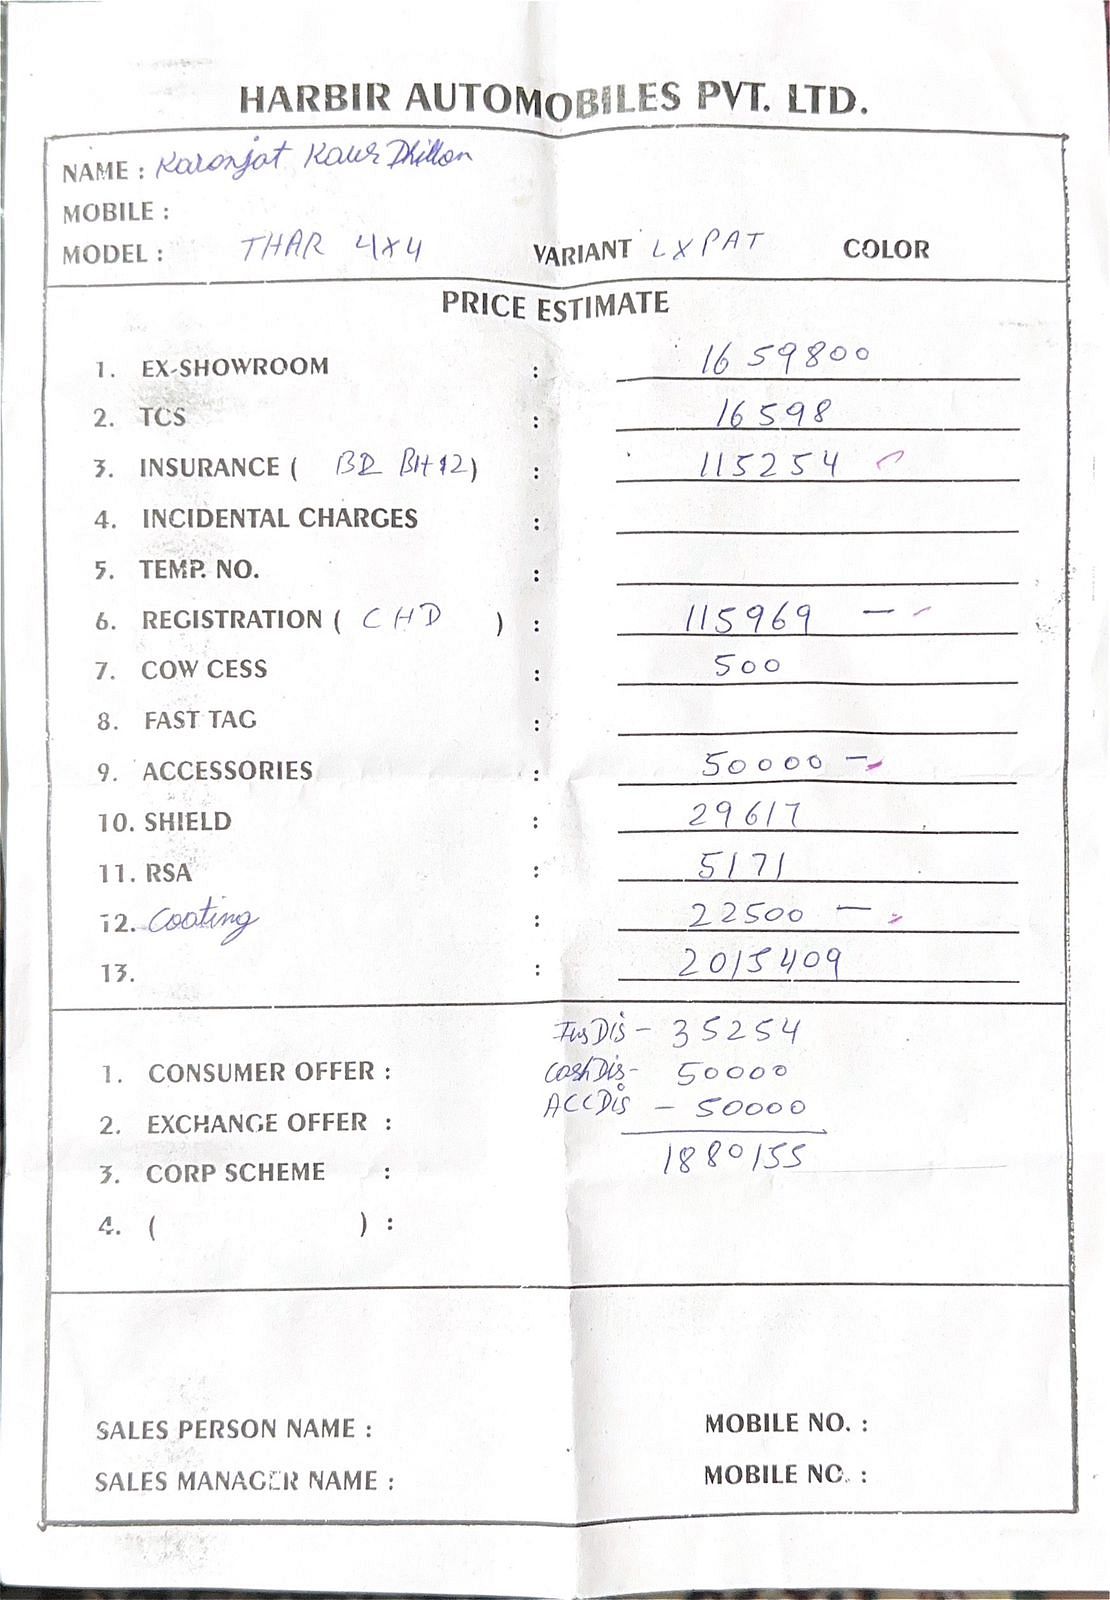 HARBIR AUTOMOBILES PVT. LTD.
NAME : Karonjot Kaur Dhillon
MOBILE :
MODEL : THAR 4X4 VARIANT LXPAT COLOR
PRICE ESTIMATE
1. EX-SHOWROOM : 1659800
2. TCS : 16598
3. INSURANCE ( ) : 115254
4. INCIDENTAL CHARGES :
5. TEMP. NO. :
6. REGISTRATION ( CHD ) : 115969 —
7. COW CESS : 500
8. FAST TAG :
9. ACCESSORIES : 50000 —
10. SHIELD : 29617
11. RSA : 5171
12. Coating : 22500 —
13. : 2015409
Ins Dis - 35254
1. CONSUMER OFFER : Cash Dis - 50000
ACC Dis - 50000
2. EXCHANGE OFFER :
1880155
3. CORP SCHEME :
4. ( ) :
SALES PERSON NAME : MOBILE NO. :
SALES MANAGER NAME : MOBILE NO. :